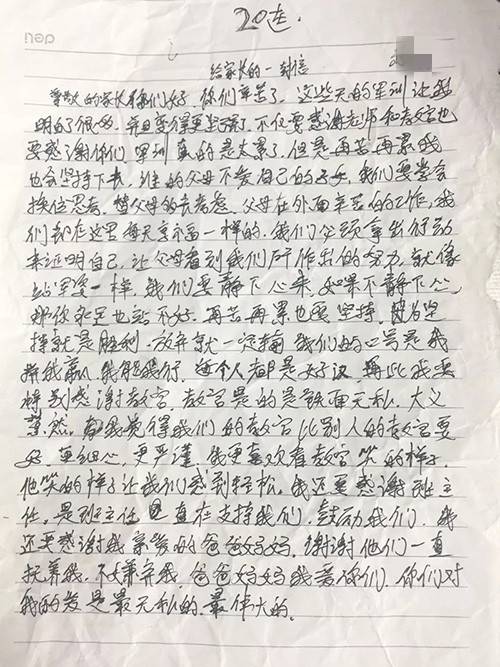 20连.
给家长的一封信
尊敬的家长你们好,你们辛苦了,这些天的军训让我
明白了很多,并且变得更坚强了,不仅要感谢老师和教官也
要感谢你们,军训真的是太累了,但是再苦再累我
也会坚持下去,谁的父母不爱自己的子女,我们要学会
换位思考,替父母的去考虑,父母在外面辛苦的工作,我
们却在这里每天享福一样的,我们必须拿出行动
来证明自己,让父母看到我们所作出的努力,就像
站军姿一样,我们要静下心来,如果不静下心,
那你永远也站不好,再苦再累也要坚持,因为坚
持就是胜利,放弃就一定输,我们的口号是我
拼我赢,我能我行,每个人都是好汉,再此我要
特别感谢教官,教官是的是铁面无私,大义
凛然,都我觉得我们的教官比别人的教官要
好,更细心,更严谨,我更喜欢看教官笑的样子,
他笑的样子让我们感到轻松,我还要感谢班主
任,是班主任一直在支持我们,鼓励我们,我
还要感谢我亲爱的爸爸妈妈,谢谢他们一直
抚养我,不嫌弃我,爸爸妈妈我爱你们,你们对
我的爱是最无私的,最伟大的.